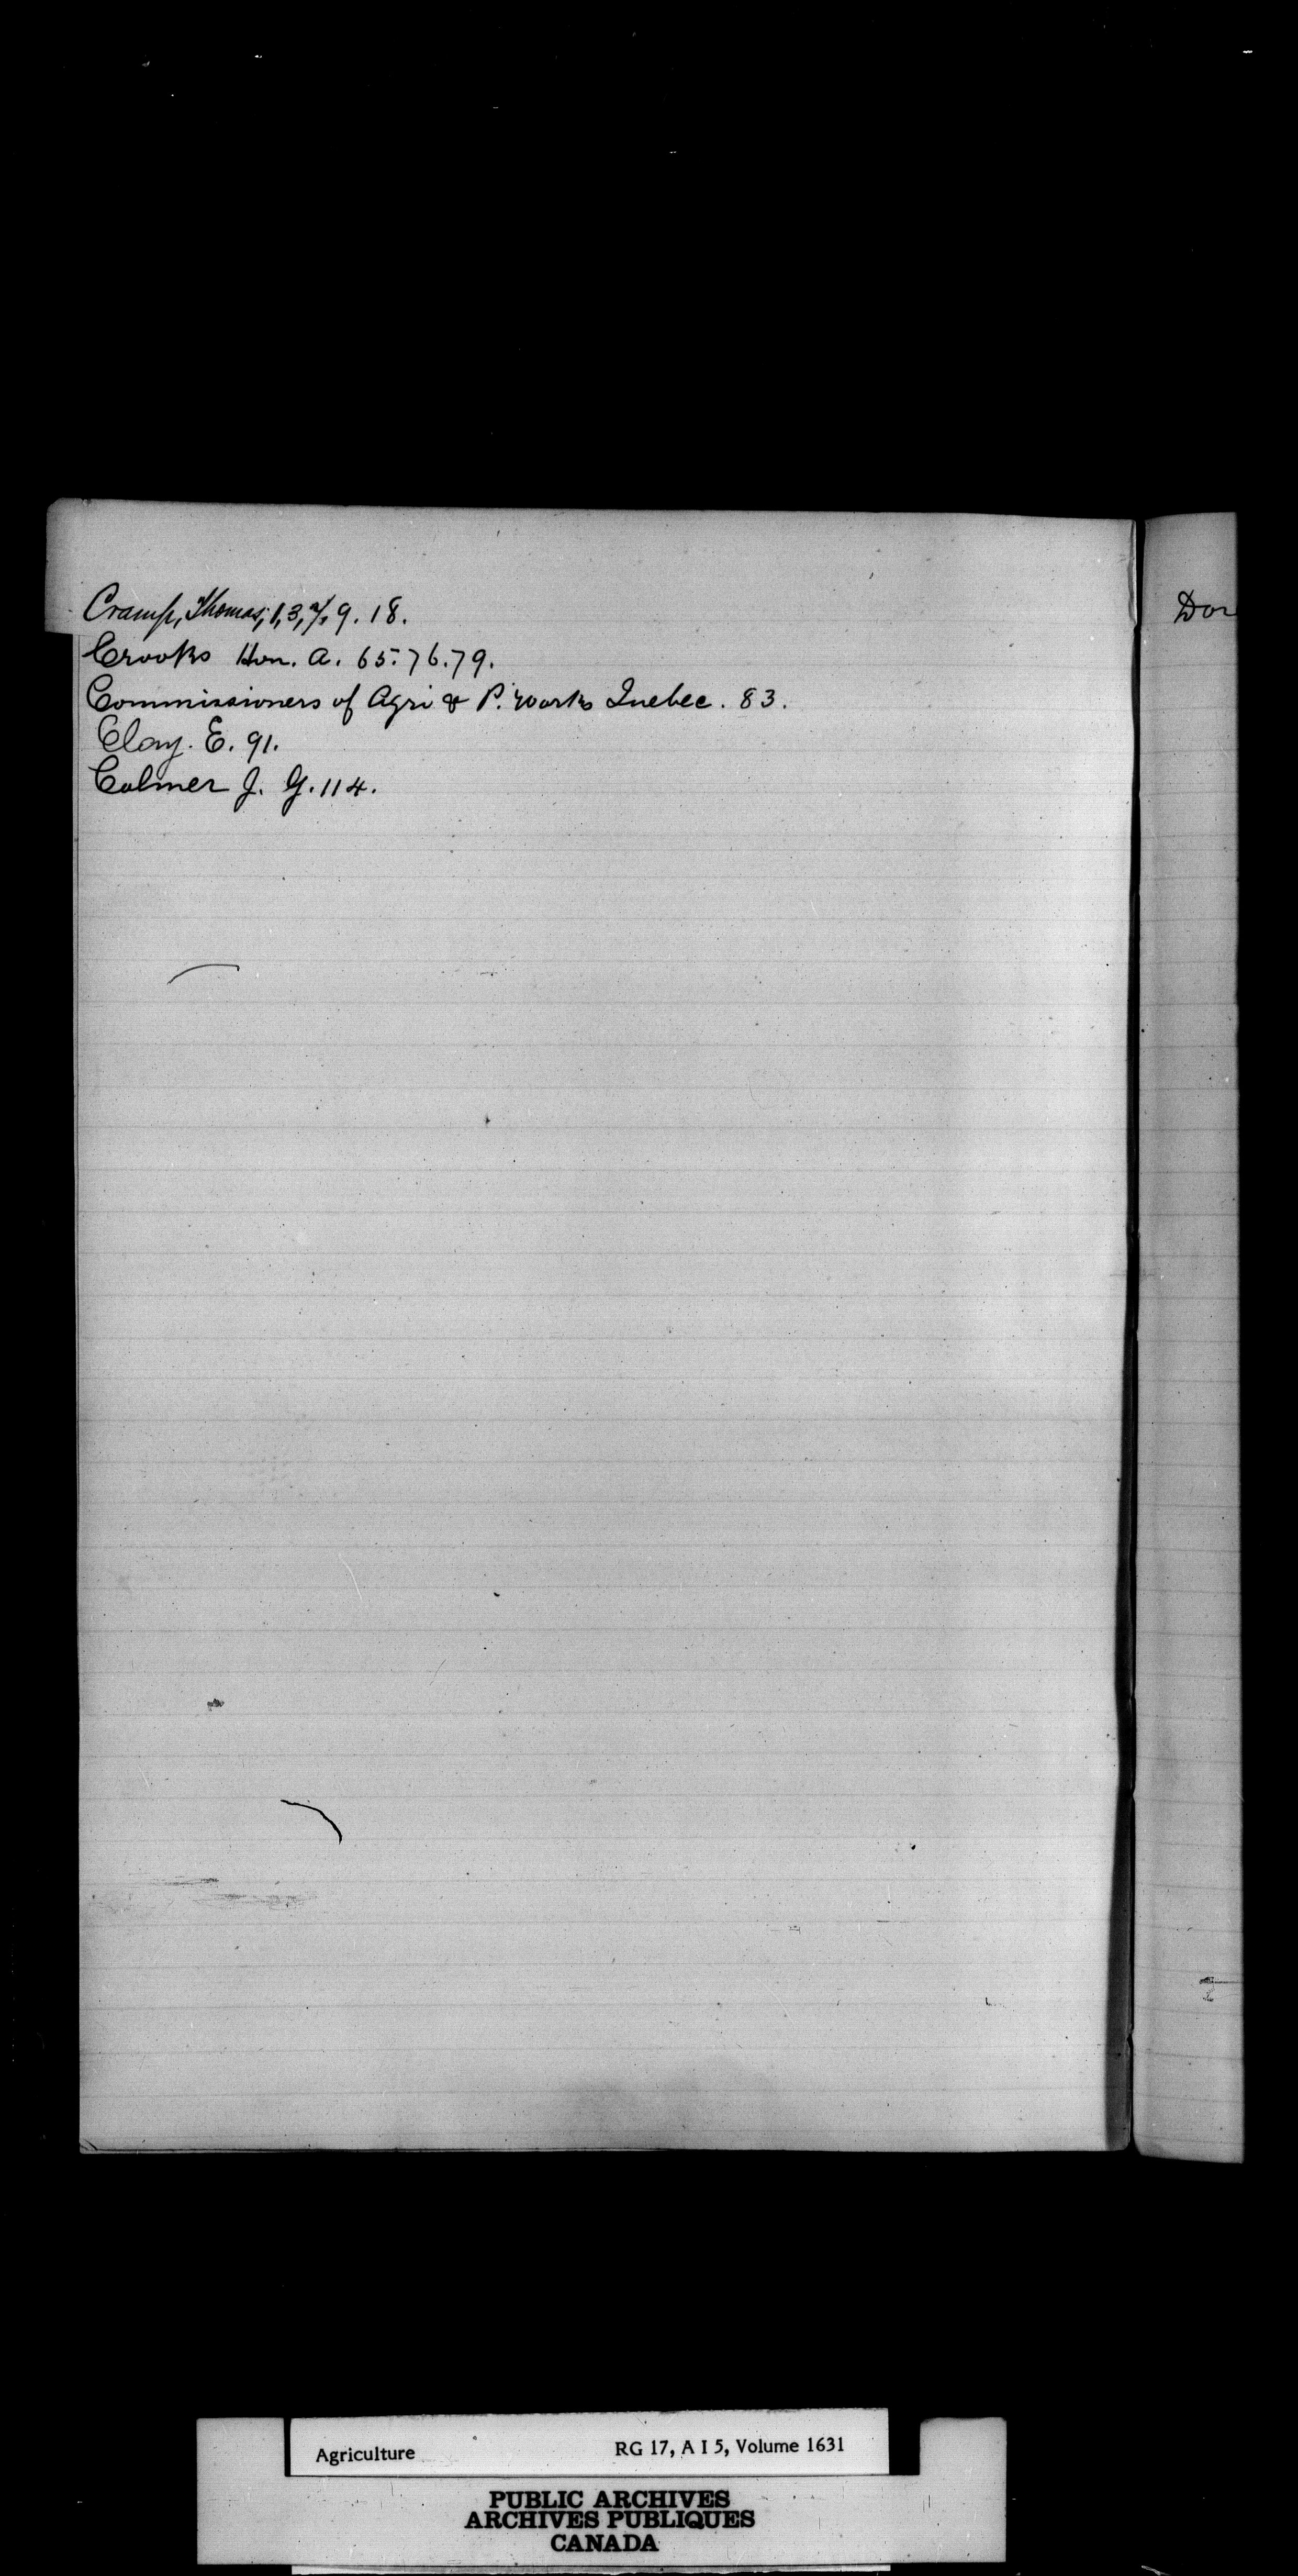 Cramp, Thomas, 1, 3, 7, 9. 18.
Crooks Hon. A. 65. 76. 79.
Commissioners of Agri & P. Works Quebec. 83.
Clay. E. 91.
Colmer J. G. 114.
Dor
Agriculture RG 17, A I 5, Volume 1631
PUBLIC ARCHIVES
ARCHIVES PUBLIQUES
CANADA